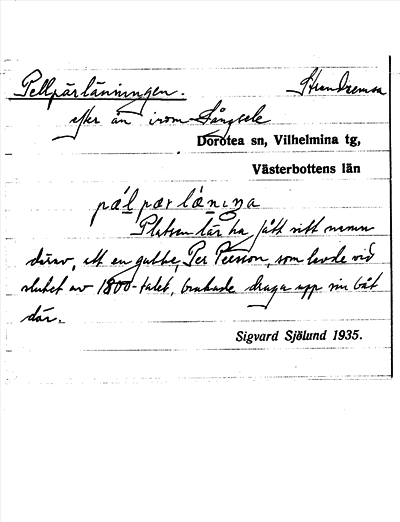 Pellpärlänningen. Strandremsa
efter ån inom Långsele
Dorotea sn, Vilhelmina tg,
Västerbottens län
pæ̀l pær læ̀niŋa
Platsen lär ha fått sitt namn
därav, att en gubbe, Per Persson, som levde vid
slutet av 1800-talet, brukade draga upp sin båt
där.
Sigvard Sjölund 1935.